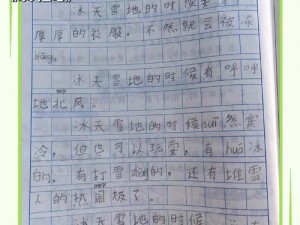 冰天雪地的时候
厚厚的衣服,不然就会被冻
jiāng。
冰天雪地的时候有呼呼
地北风。
冰天雪地的时候suī然寒
冷,但也可以玩耍,有huá冰
的,有打雪的,还有堆雪
人的热闹极了。
冰天雪地的时候